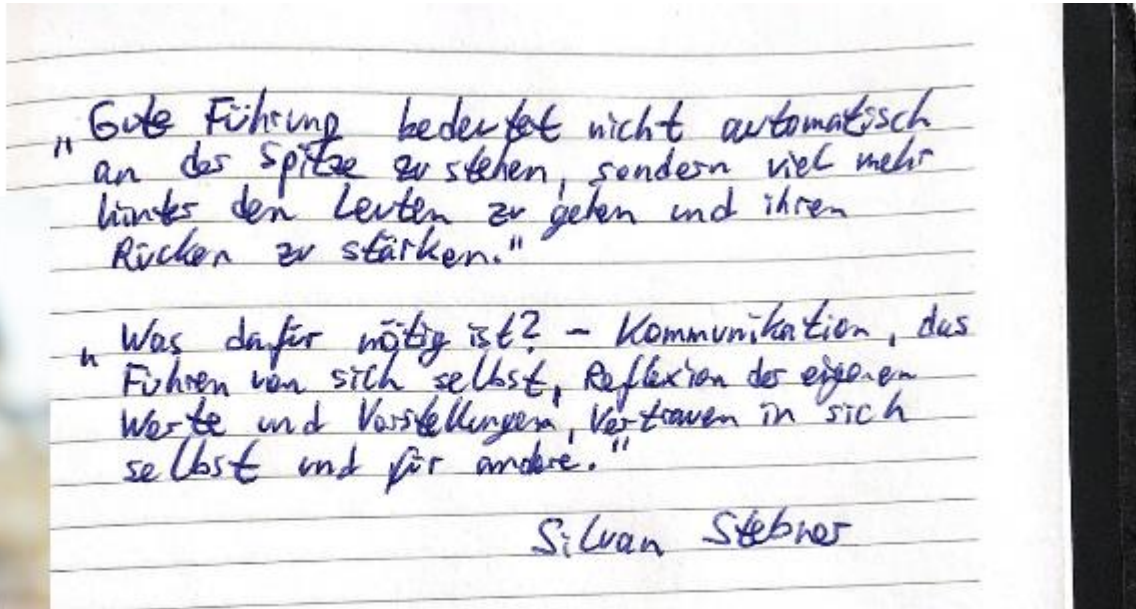 „Gute Führung bedeutet nicht automatisch
an der Spitze zu stehen, sondern viel mehr
hinter den Leuten zu gehen und ihren
Rücken zu stärken."
„Was dafür nötig ist? – Kommunikation, das
Führen von sich selbst, Reflexion der eigenen
Werte und Vorstellungen, Vertrauen in sich
selbst und für andere."
Silvan Stebner